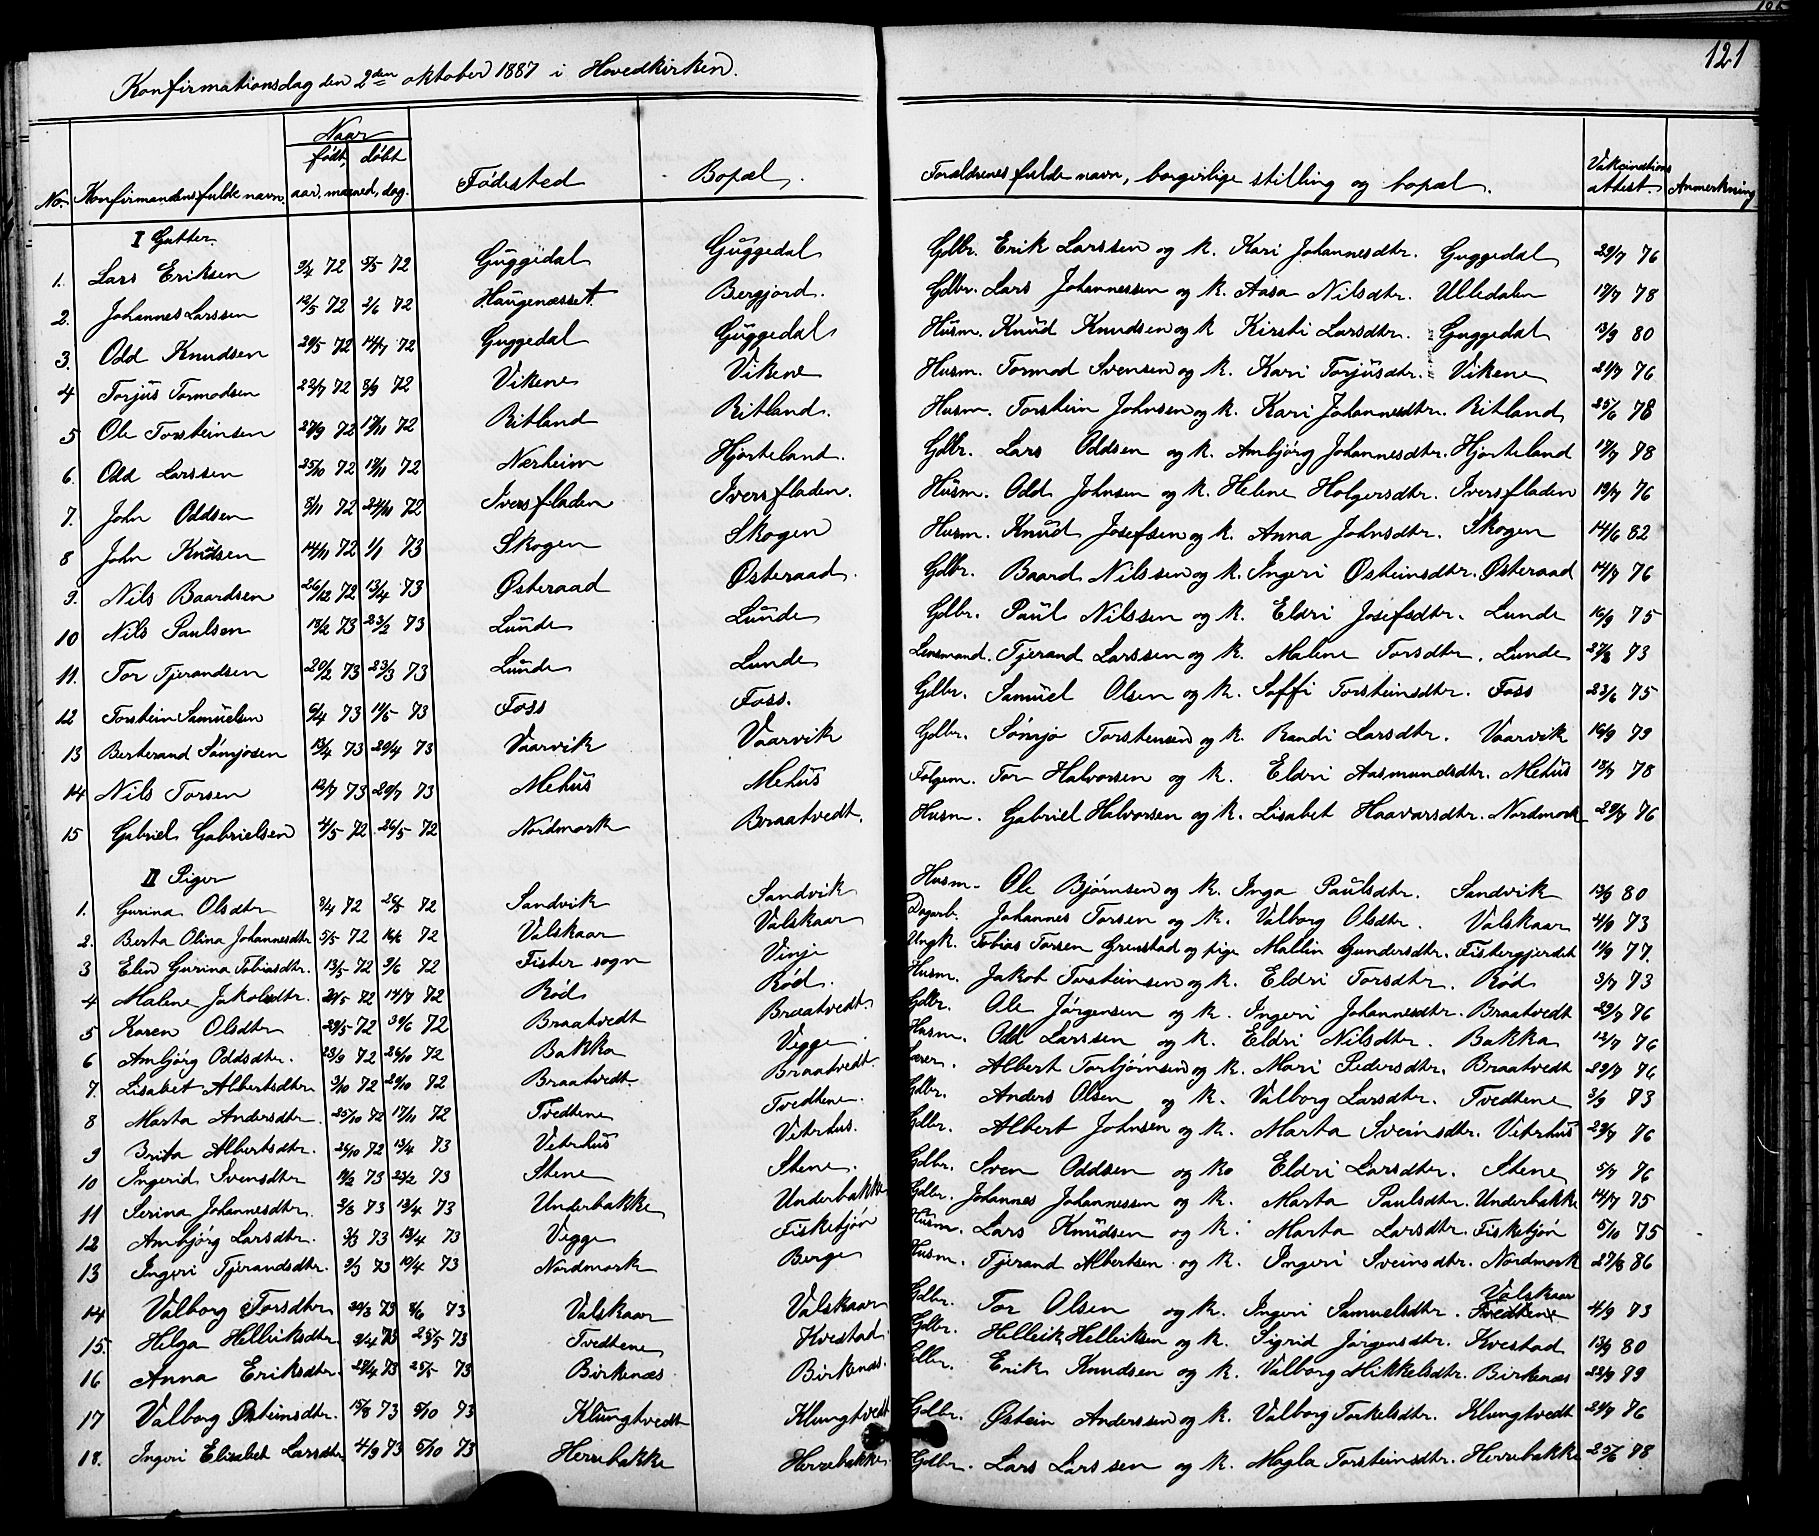 121
Konfirmationsdag den 2den oktober 1887 i Hovedkirken.
No. Konfirmandens fulde navn. Naar født, døbt aar, maaned, dag. Fødested Bopæl. Forældrenes fulde navn, borgerlige stilling og bopæl. Vakcinations attest. Anmerkning
I Gutter.
1. Lars Eriksen 9/4 72 9/5 72 Guggedal Guggedal Gdbr. Erik Larssen og k. Kari Johannesdtr. Guggedal 29/7 76
2. Johannes Larssen 12/5 72 2/6 72 Haugenæsset Bergjord. Gdbr. Lars Johannessen og k. Aasa Nilsdtr. Ulledalen 17/7 78
3. Odd Knudsen 29/5 72 14/7 72 Guggedal Guggedal Husm. Knud Knudsen og k Kirsti Larsdtr. Guggedal 13/9 80
4 Torjus Tormodsen 23/7 72 8/9 72 Vikene Vikene Husm. Tormod Svensen og k. Kari Torjusdtr. Vikene 21/7 76
5 Ole Torsteinsen 27/9 72 17/11 72 Ritland Ritland. Husm. Torstein Johnsen og k. Kari Johannesdtr. Ritland 25/6 78
6. Odd Larssen 25/10 72 18/11 72 Nærheim Hjorteland. Gdbr. Lars Oddsen og k. Ambjørg Johannesdtr. Hjorteland 17/7 78
7. John Oddsen 8/11 72 24/11 72 Iversfladen Iversfladen. Husm. Odd Johnsen og k. Helene Holgersdtr. Iversfladen 19/7 76
8 John Knudsen 14/11 72 1/1 73 Skogen Skogen Husm. Knud Josefsen og k. Anna Johnsdtr. Skogen 14/6 82
9. Nils Baardsen 26/12 72 13/4 73 Østeraad Østeraad. Gdbr. Baard Nilssen og k. Ingeri Østeinsdtr. Østeraad 14/7 76
10 Nils Paulsen 19/2 73 23/2 73 Lunde Lunde Gdbr. Paul Nilssen og k. Eldri Josefsdtr. Lunde 16/9 75
11. Tor Tjerandsen 20/2 73 23/3 73 Lunde Lunde Lensmand. Tjerand Larssen og k. Malene Torsdtr. Lunde 27/8 73
12 Torstein Samuelsen 6/4 73 11/5 73 Foss Foss. Gdbr. Samuel Olsen og k. Soffi Torsteinsdtr. Foss 23/6 75
13 Berterand Sømjosen 13/4 73 20/4 73 Vaarvik Vaarvik Gdbr. Sømjo Torstensen og k. Randi Larsdtr. Vaarvik 16/9 79
14 Nils Torsen 12/7 73 20/7 73 Mehus Mehus Folgem. Tor Halvorsen og k. Eldri Aasmundsdtr. Mehus 18/7 78
15 Gabriel Gabrielsen 4/5 72 26/5 72 Nordmork Braatvedt. Husm. Gabriel Halvorsen og k. Lisabet Haavarsdtr. Nordmork 29/7 76
II Piger
1. Gurina Olsdtr 8/4 72 26/5 72 Sandvik Sandvik Husm. Ole Bjørnsen og k. Inga Paulsdtr. Sandvik 13/9 80
2. Berta Olina Johannesdtr 5/5 72 16/6 72 Valskaar Valskaar Dagarb. Johannes Torsen og k. Valborg Olsdtr. Valskaar 4/9 73
3 Elen Gurina Tobiasdtr. 13/5 72 9/6 72 Fister sogn Vinje Ungk. Tobias Torsen Grenstad og pige Mallin Gundersdtr. Fistergjerdet 11/9 77.
4 Malene Jakobsdtr. 24/5 72 14/7 72 Rød Rød. Husm. Jakob Torsteinsen og k. Eldri Torsdtr. Rød 3/7 73
5 Karen Olsdtr 29/5 72 30/6 72 Braatvedt Braatvedt. Gdbr. Ole Jørgensen og k. Ingeri Johannesdtr. Braatvedt 29/7 76
6 Ambjørg Oddsdtr. 23/9 72 20/10 72 Bakka Vegge Husm. Odd Larssen og k. Eldri Nilsdtr. Bakka 12/7 76
7. Lisabet Albertsdtr 3/10 72 20/10 72 Braatvedt Braatvedt. Lærer. Albert Torbjørnsen og k. Mari Pedersdtr. Braatvedt 29/7 76
8 Marta Andersdtr. 25/10 72 17/11 72 Tvedtene Tvedtene. Gdbr. Anders Olsen og k. Valborg Larsdtr. Tvedtene 3/9 73
9 Brita Albertsdtr. 26/10 72 13/4 73 Veterhus Veterhus. Gdbr. Albert Johnsen og k. Marta Sveinsdtr. Veterhus 29/7 76
10 Ingerid Svensdtr 19/2 73 23/2 73 Stene Stene. Gdbr. Sven Oddsen og k. Eldri Larsdtr. Stene 5/7 76
11 Serina Johannesdtr. 3/3 73 13/4 73 Underbakke Underbakke Gdbr. Johannes Johannessen og k. Marta Paulsdtr. Underbakke 14/7 75
12 Ambjørg Larsdtr. 3/3 73 13/4 73 Vegge Fisketjøn Husm. Lars Knudsen og k. Marta Larsdtr. Fisketjøn 5/10 75
13 Ingeri Tjerandsdtr. 9/3 73 10/4 73 Nordmork Berge Husm. Tjerand Albertsen og k. Ingeri Sveinsdtr. Nordmork 27/8 86
14 Valborg Torsdtr 20/3 73 8/6 73 Valskaar Valskaar Gdbr. Tor Olsen og k. Ingeri Samuelsdtr. Tvedtene Valskaar 4/9 73
15. Helga Helleiksdtr. 9/4 73 25/5 73 Tvedtene Kvestad Gdbr. Helleik Helleiksen og k. Sigrid Jørgensdtr. Kvestad 13/9 80
16 Anna Eriksdtr. 28/4 73 25/5 73 Birkenæs Birkenæs. Gdbr. Erik Knudsen og k. Valborg Mikkelsdtr. Birkenæs 22/9 79
17 Valborg Østeinsdtr. 15/8 73 5/10 73 Klungtvedt Klungtvedt Gdbr. Østein Anderssen og k. Valborg Torkelsdtr. Klungtvedt 29/7 76
18. Ingeri Elisabet Larsdtr 4/9 73 5/10 73 Herrebakke Herrebakke. Gdbr. Lars Larssen og k. Magla Torsteinsdtr. Herrebakke 25/6 78